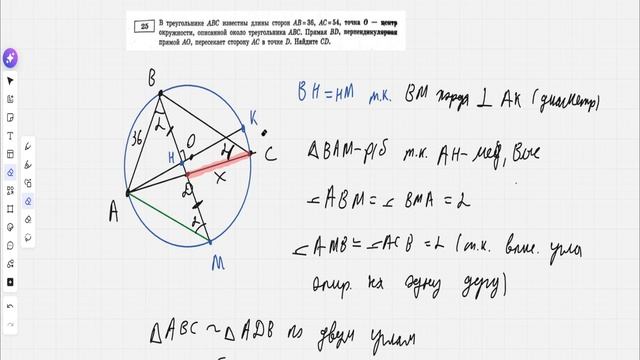 25
В треугольнике ABC известны длины сторон AB = 36, AC = 54, точка O — центр
окружности, описанной около треугольника ABC. Прямая BD, перпендикулярная
прямой AO, пересекает сторону AC в точке D. Найдите CD.
BH = HM т.к. BM хорда ⊥ AK (диаметр)
△BAM – р/б т.к. AH – мед, выс
∠ABM = ∠BMA = α
∠AMB = ∠ACB = α (т.к. впис. угла
опир. на одну дугу)
△ABC ~ △ADB по двум углам
B
K
36
α
O
H
α
C
D
x
A
α
M